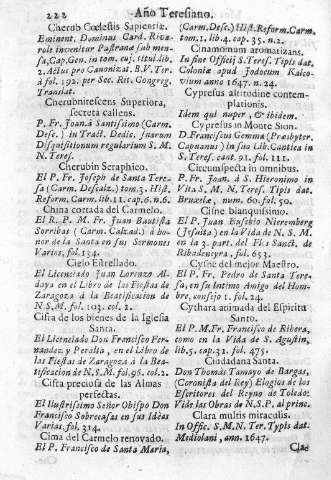 222 Año Teresiano.
Cherub Cœlestis Sapientiæ.
Eminent. Dominus Card. Riva-
role invenitur Pastranæ sub men-
sa, Cap. Gen. in tom. cuj. titul. lib.
2. Actus pro Canonizat. B.V. Ter.
à fol. 192. per Sec. Rit. Congreg.
Translat.
Cherubnitescens Superiora,
secreta callens.
P. Fr. Joan. à Santissimo (Carm.
Desc.) in Tract. Dedic. suarum
Disquisitionum regularium S. M.
N. Teres.
Cherubin Seraphico.
El P. Fr. Joseph de Santa Tere-
sa (Carm. Descalz.) tom. 3. Hist.
Reform. Carm. lib. 11. cap. 6. n. 6.
China cortada del Carmelo.
El R. P. M. Fr. Juan Bautista
Sorribas (Carm. Calzad.) à ho-
nor de la Santa en sus Sermones
Varios, fol. 134.
Cielo Estrellado.
El Licenciado Juan Lorenzo Al-
daya en el Libro de las Fiestas de
Zaragoza à la Beatificacion de
N. S. M. fol. 103. col. 2.
Cifra de los bienes de la Iglesia
Santa.
El Licenciado Don Francisco Fer-
nandez y Peralta, en el Libro de
las Fiestas de Zaragoza à la Bea-
tificacion de N. S. M. fol. 96. col. 2.
Cifra preciosa de las Almas
perfectas.
El Ilustrissimo Señor Obispo Don
Francisco Sobrecasas en sus Ideas
Varias, fol. 314.
Cima del Carmelo renovado.
El P. Francisco de Santa Maria,
(Carm. Desc.) Hist. Reform. Carm.
tom. 1. lib. 4. cap. 35. n. 2.
Cinamomum aromatizans.
In fine Officij S. Teres. Tipis dat.
Coloniæ apud Jodocum Kalco-
vium anno 1647. n. 24.
Cypresus altitudine contem-
plationis.
Idem qui nuper, & ibidem.
Cypresus in Monte Sion.
D. Franciscus Gemma (Presbyter.
Capuanus) in suo Lib. Cantica in
S. Teres. cant. 91. fol. 111.
Circunspecta in omnibus.
P. Fr. Joan. à S. Hieronimo in
Vita S. M. N. Teres. Tipis dat.
Bruxelæ, num. 60. fol. 50.
Cisne blanquissimo.
El P. Juan Eusebio Nieremberg
(Jesuita) en la Vida de N. S. M.
en la 3. part. del Flos Sanct. de
Ribadeneyra, fol. 653.
Cysne del mejor Maestro.
El P. Fr. Pedro de Santa Tere-
sa, en su Intimo Amigo del Hom-
bre, consejo 1. fol. 24.
Cythara animada del Espiritu
Santo.
El P. M. Fr. Francisco de Ribera,
como en la Vida de S. Agustin,
lib. 5. cap. 31. fol. 475.
Ciudadana Santa.
Don Thomàs Tamayo de Bargas,
(Coronista del Rey) Elogios de los
Escritores del Reyno de Toledo:
Vide las Obras de N. S. P. al princ.
Clara multis miraculis.
In Offic. S. M. N. Ter. Typis dat.
Mediolani, ann. 1647.
Clae